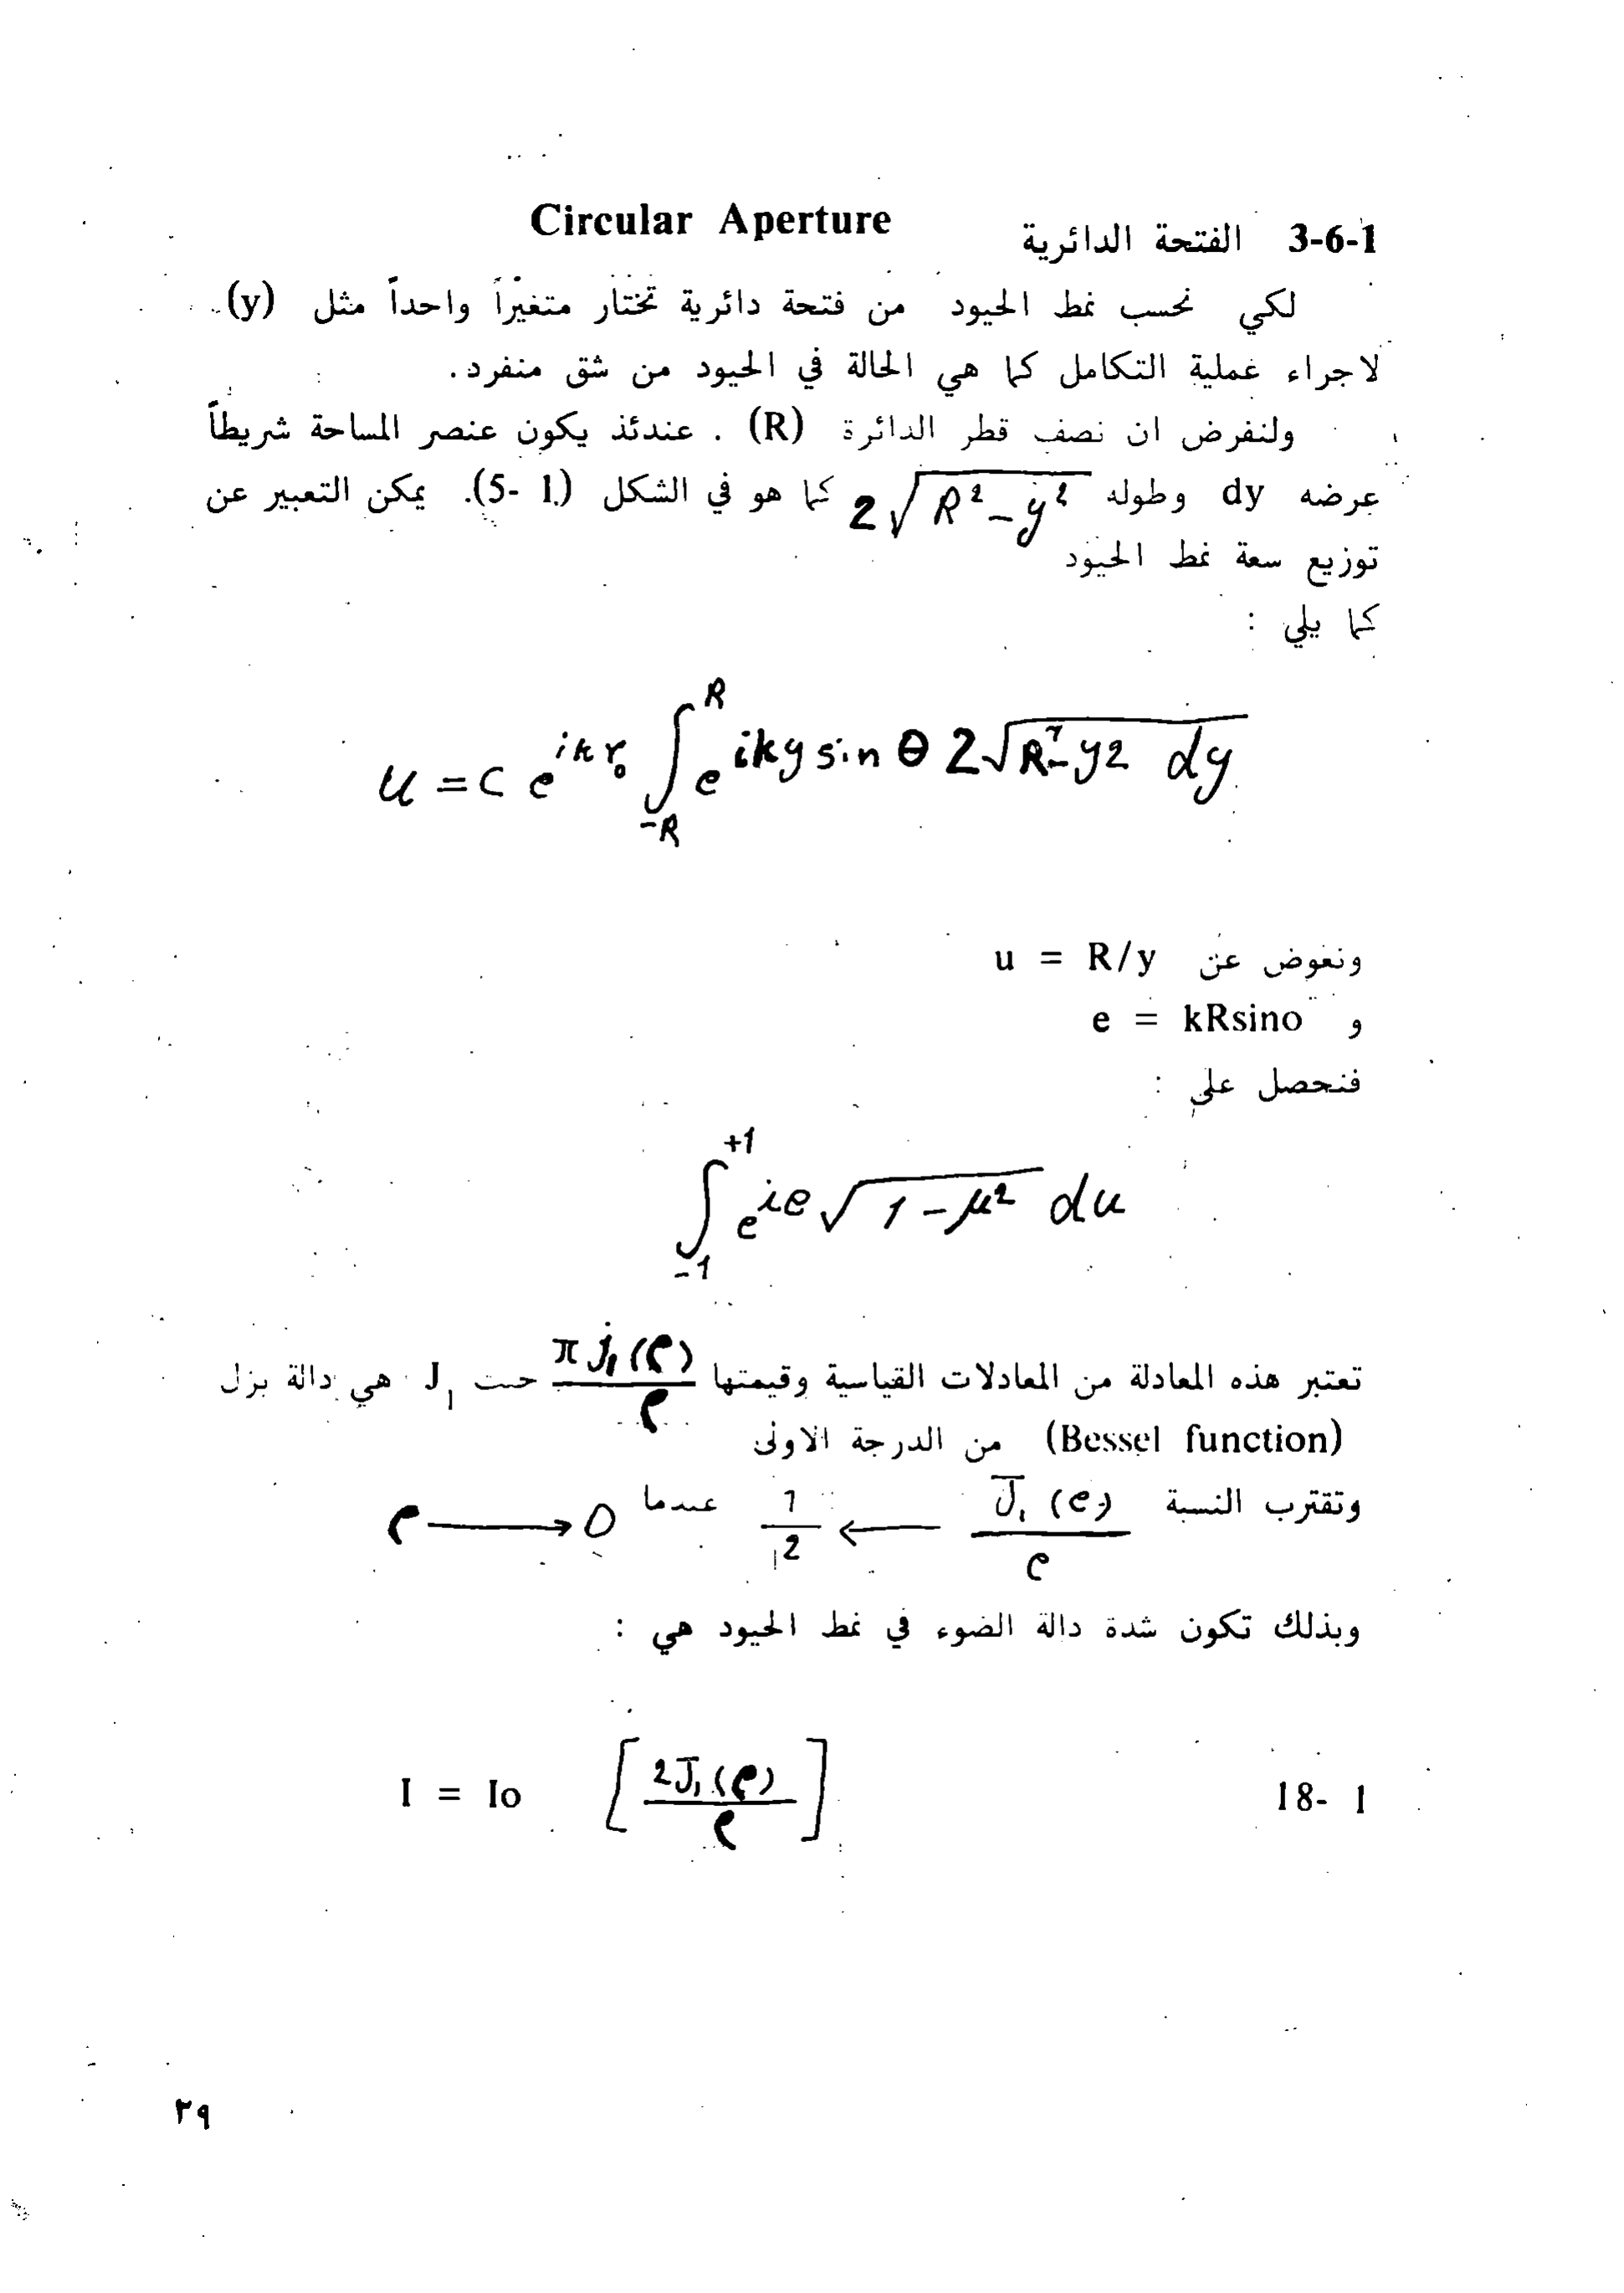 3-6-1 الفتحة الدائرية Circular Aperture
لكي نحسب نمط الحيود من فتحة دائرية نختار متغيراً واحداً مثل (y)
لاجراء عملية التكامل كما هي الحالة في الحيود من شق منفرد.
ولنفرض ان نصف قطر الدائرة (R) . عندئذ يكون عنصر المساحة شريطاً
عرضه dy وطوله 2√(R² − y²) كما هو في الشكل (1 -5). يمكن التعبير عن
توزيع سعة نمط الحيود
كما يلي :
u = c e^{ikr₀} ∫_{-R}^{R} e^{iky sin θ} 2√(R² − y2) dy
ونعوض عن u = R/y
و e = kRsino
فنحصل على :
∫_{-1}^{+1} e^{iρ} √(1 − μ²) du
تعتبر هذه المعادلة من المعادلات القياسية وقيمتها πj₁(ρ)/ρ حيث J₁ هي دالة بزل
(Bessel function) من الدرجة الاولى
وتقترب النسبة J₁(ρ)/ρ ← 1/2 عندما ρ → 0
وبذلك تكون شدة دالة الضوء في نمط الحيود هي :
I = Io [2J₁(ρ)/ρ] 18- 1
٢٩